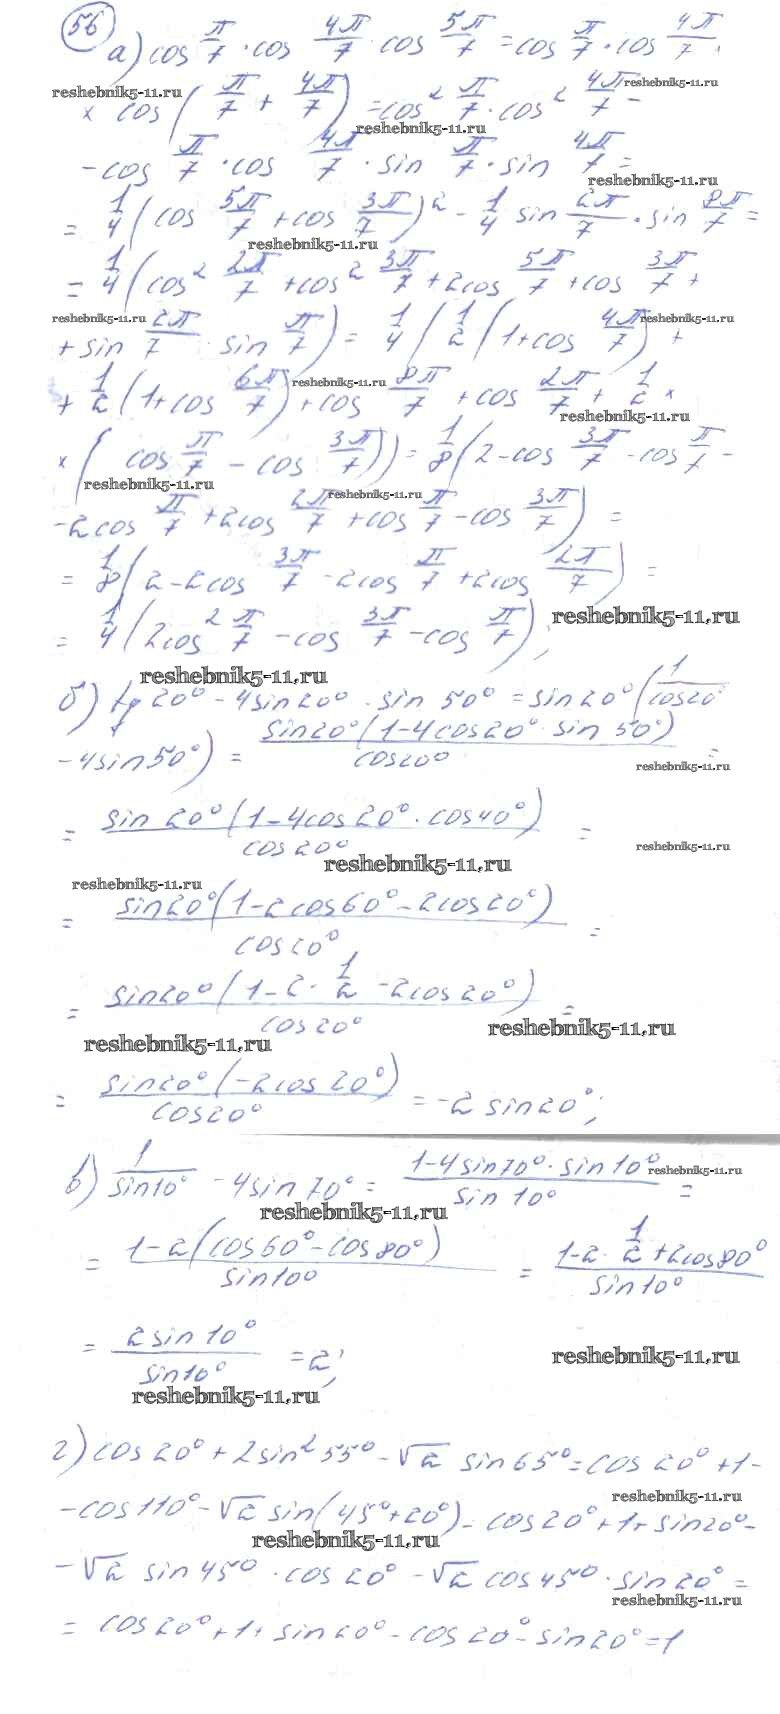 56
а) cos π/7 · cos 4π/7 · cos 5π/7 = cos π/7 · cos 4π/7 ·
reshebnik5-11.ru
reshebnik5-11.ru
× cos(π/7 + 4π/7) = cos² π/7 · cos² 4π/7 -
reshebnik5-11.ru
- cos π/7 · cos 4π/7 · sin π/7 · sin 4π/7 =
reshebnik5-11.ru
= 1/4 (cos 5π/7 + cos 3π/7)² - 1/4 sin 2π/7 · sin 8π/7 =
reshebnik5-11.ru
= 1/4 (cos² 2π/7 + cos² 3π/7 + 2cos 5π/7 + cos 3π/7 +
reshebnik5-11.ru
reshebnik5-11.ru
+ sin 2π/7 · sin π/7) = 1/4 (1/2 (1 + cos 4π/7) +
reshebnik5-11.ru
+ 1/2 (1 + cos 6π/7) + cos 8π/7 + cos 2π/7 + 1/2 ×
reshebnik5-11.ru
× (cos π/7 - cos 3π/7)) = 1/8 (2 - cos 3π/7 - cos π/7 -
reshebnik5-11.ru
reshebnik5-11.ru
- 2cos π/7 + 2cos 2π/7 + cos π/7 - cos 3π/7) =
= 1/8 (2 - 2cos 3π/7 - 2cos π/7 + 2cos 2π/7) =
reshebnik5-11.ru
= 1/4 (2cos² π/7 - cos 3π/7 - cos π/7);
reshebnik5-11.ru
б) tg 20° - 4sin 20° · sin 50° = sin 20° (1/cos 20° -
- 4sin 50°) = sin 20° (1 - 4cos 20° · sin 50°) / cos 20° =
reshebnik5-11.ru
= sin 20° (1 - 4cos 20° · cos 40°) / cos 20° =
reshebnik5-11.ru
reshebnik5-11.ru
reshebnik5-11.ru
= sin 20° (1 - 2cos 60° - 2cos 20°) / cos 20° =
= sin 20° (1 - 2 · 1/2 - 2cos 20°) / cos 20° =
reshebnik5-11.ru
reshebnik5-11.ru
= sin 20° (-2cos 20°) / cos 20° = -2 sin 20°;
в) 1/sin 10° - 4sin 70° = 1 - 4sin 70° · sin 10° / sin 10° =
reshebnik5-11.ru
reshebnik5-11.ru
= 1 - 2(cos 60° - cos 80°) / sin 10° = 1 - 2 · 1/2 + 2cos 80° / sin 10°
= 2 sin 10° / sin 10° = 2;
reshebnik5-11.ru
reshebnik5-11.ru
г) cos 20° + 2sin² 55° - √2 sin 65° = cos 20° + 1 -
reshebnik5-11.ru
- cos 110° - √2 sin (45° + 20°) = cos 20° + 1 + sin 20° -
reshebnik5-11.ru
- √2 sin 45° · cos 20° - √2 cos 45° · sin 20° =
reshebnik5-11.ru
= cos 20° + 1 + sin 20° - cos 20° - sin 20° = 1